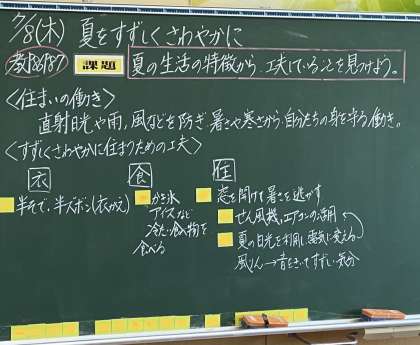 7/8(木) 夏をすずしくさわやかに
教P.86,87 課題 夏の生活の特徴から、工夫していることを見つけよう。
<住まいの働き>
直射日光や雨、風などを防ぎ、暑さや寒さから自分たちの身を守る働き。
<すずしくさわやかに住まうための工夫>
衣 食 住
半そで、半ズボン(衣がえ)
かき氷
アイスなど
冷たい食べ物を
食べる
窓を開けて暑さを逃がす
せん風機、エアコンの活用
夏の日光を利用し電気に変える
風りん→音をきいてすずしい気分